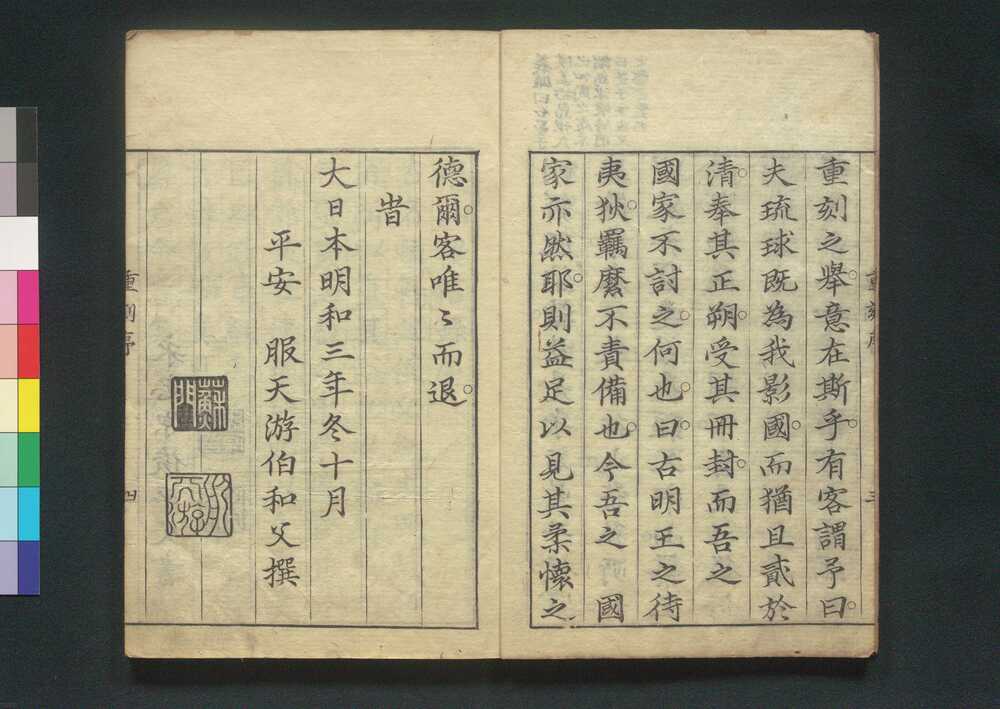 重刻之舉。意在斯乎。有客謂予曰。
夫琉球既為我影國。而猶且貳於
清。奉其正朔。受其冊封。而吾之
國家不討之。何也。曰。古明王之待
夷狄。羈縻不責備也。今吾之國
家亦然耶。則益足以見其柔懷之
德爾。客唯〻而退。
旹
大日本明和三年冬十月
平安 服天游伯和父撰
蘇門
重刻序
三
重刻序
四